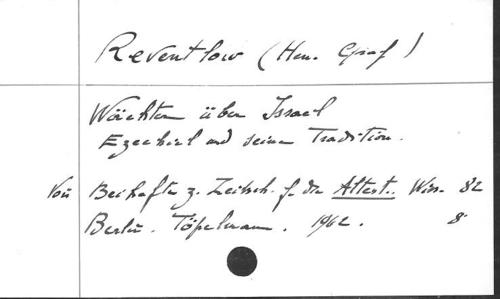 Reventlow (Hen. Graf)
Wächter über Israel
Ezechiel und seine Tradition.
Von Beihefte z. Zeitsch. f. die Altest.. Wiss. 82
Berlin. Töpelmann. 1962. 8°